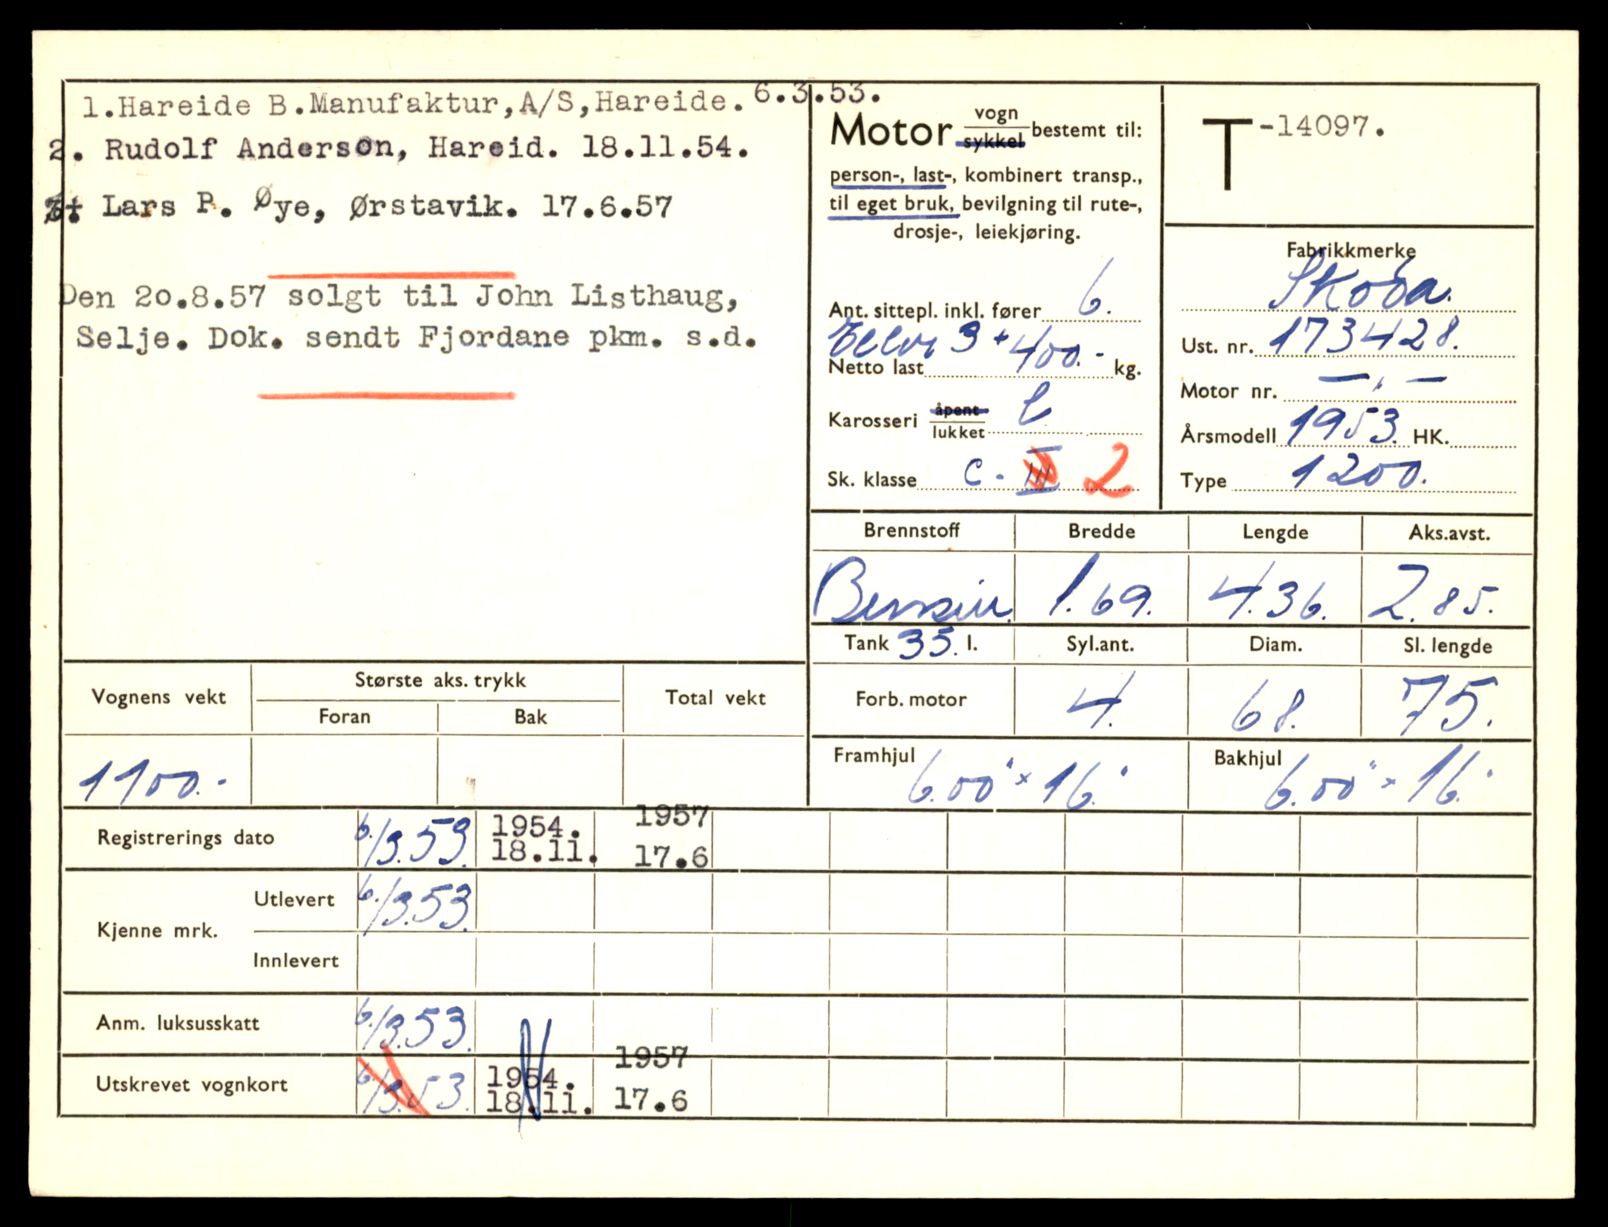 1.Hareide B.Manufaktur,A/S,Hareide. 6.3.53.
2. Rudolf Anderson, Hareid. 18.11.54.
Lars P. Øye, Ørstavik. 17.6.57
Den 20.8.57 solgt til John Listhaug,
Selje. Dok. sendt Fjordane pkm. s.d.
Motor vogn sykkel bestemt til:
person-, last-, kombinert transp.,
til eget bruk, bevilgning til rute-,
drosje-, leiekjøring.
T-14097.
Fabrikkmerke
Skoda.
Ant. sittepl. inkl. fører 6.
Eller 3 + 400.-
Netto last kg.
Karosseri åpent lukket l
Sk. klasse C - III 2
Ust. nr. 173428.
Motor nr. — " —
Årsmodell 1953. HK.
Type 1200.
Brennstoff Bredde Lengde Aks.avst.
Bensin 1.69. 4.36. 2.85.
Tank 35. l. Syl.ant. Diam. Sl. lengde
Forb. motor 4. 68. 75.
Framhjul 6.00" × 16" Bakhjul 6.00" × 16"
Vognens vekt Største aks. trykk Total vekt
Foran Bak
1100.-
Registrerings dato 6/3.53. 1954. 18.11. 1957 17.6
Kjenne mrk. Utlevert 6/3.53.
Innlevert
Anm. luksusskatt 6/3.53.
Utskrevet vognkort 6/3.53. 1954. 18.11. 1957 17.6